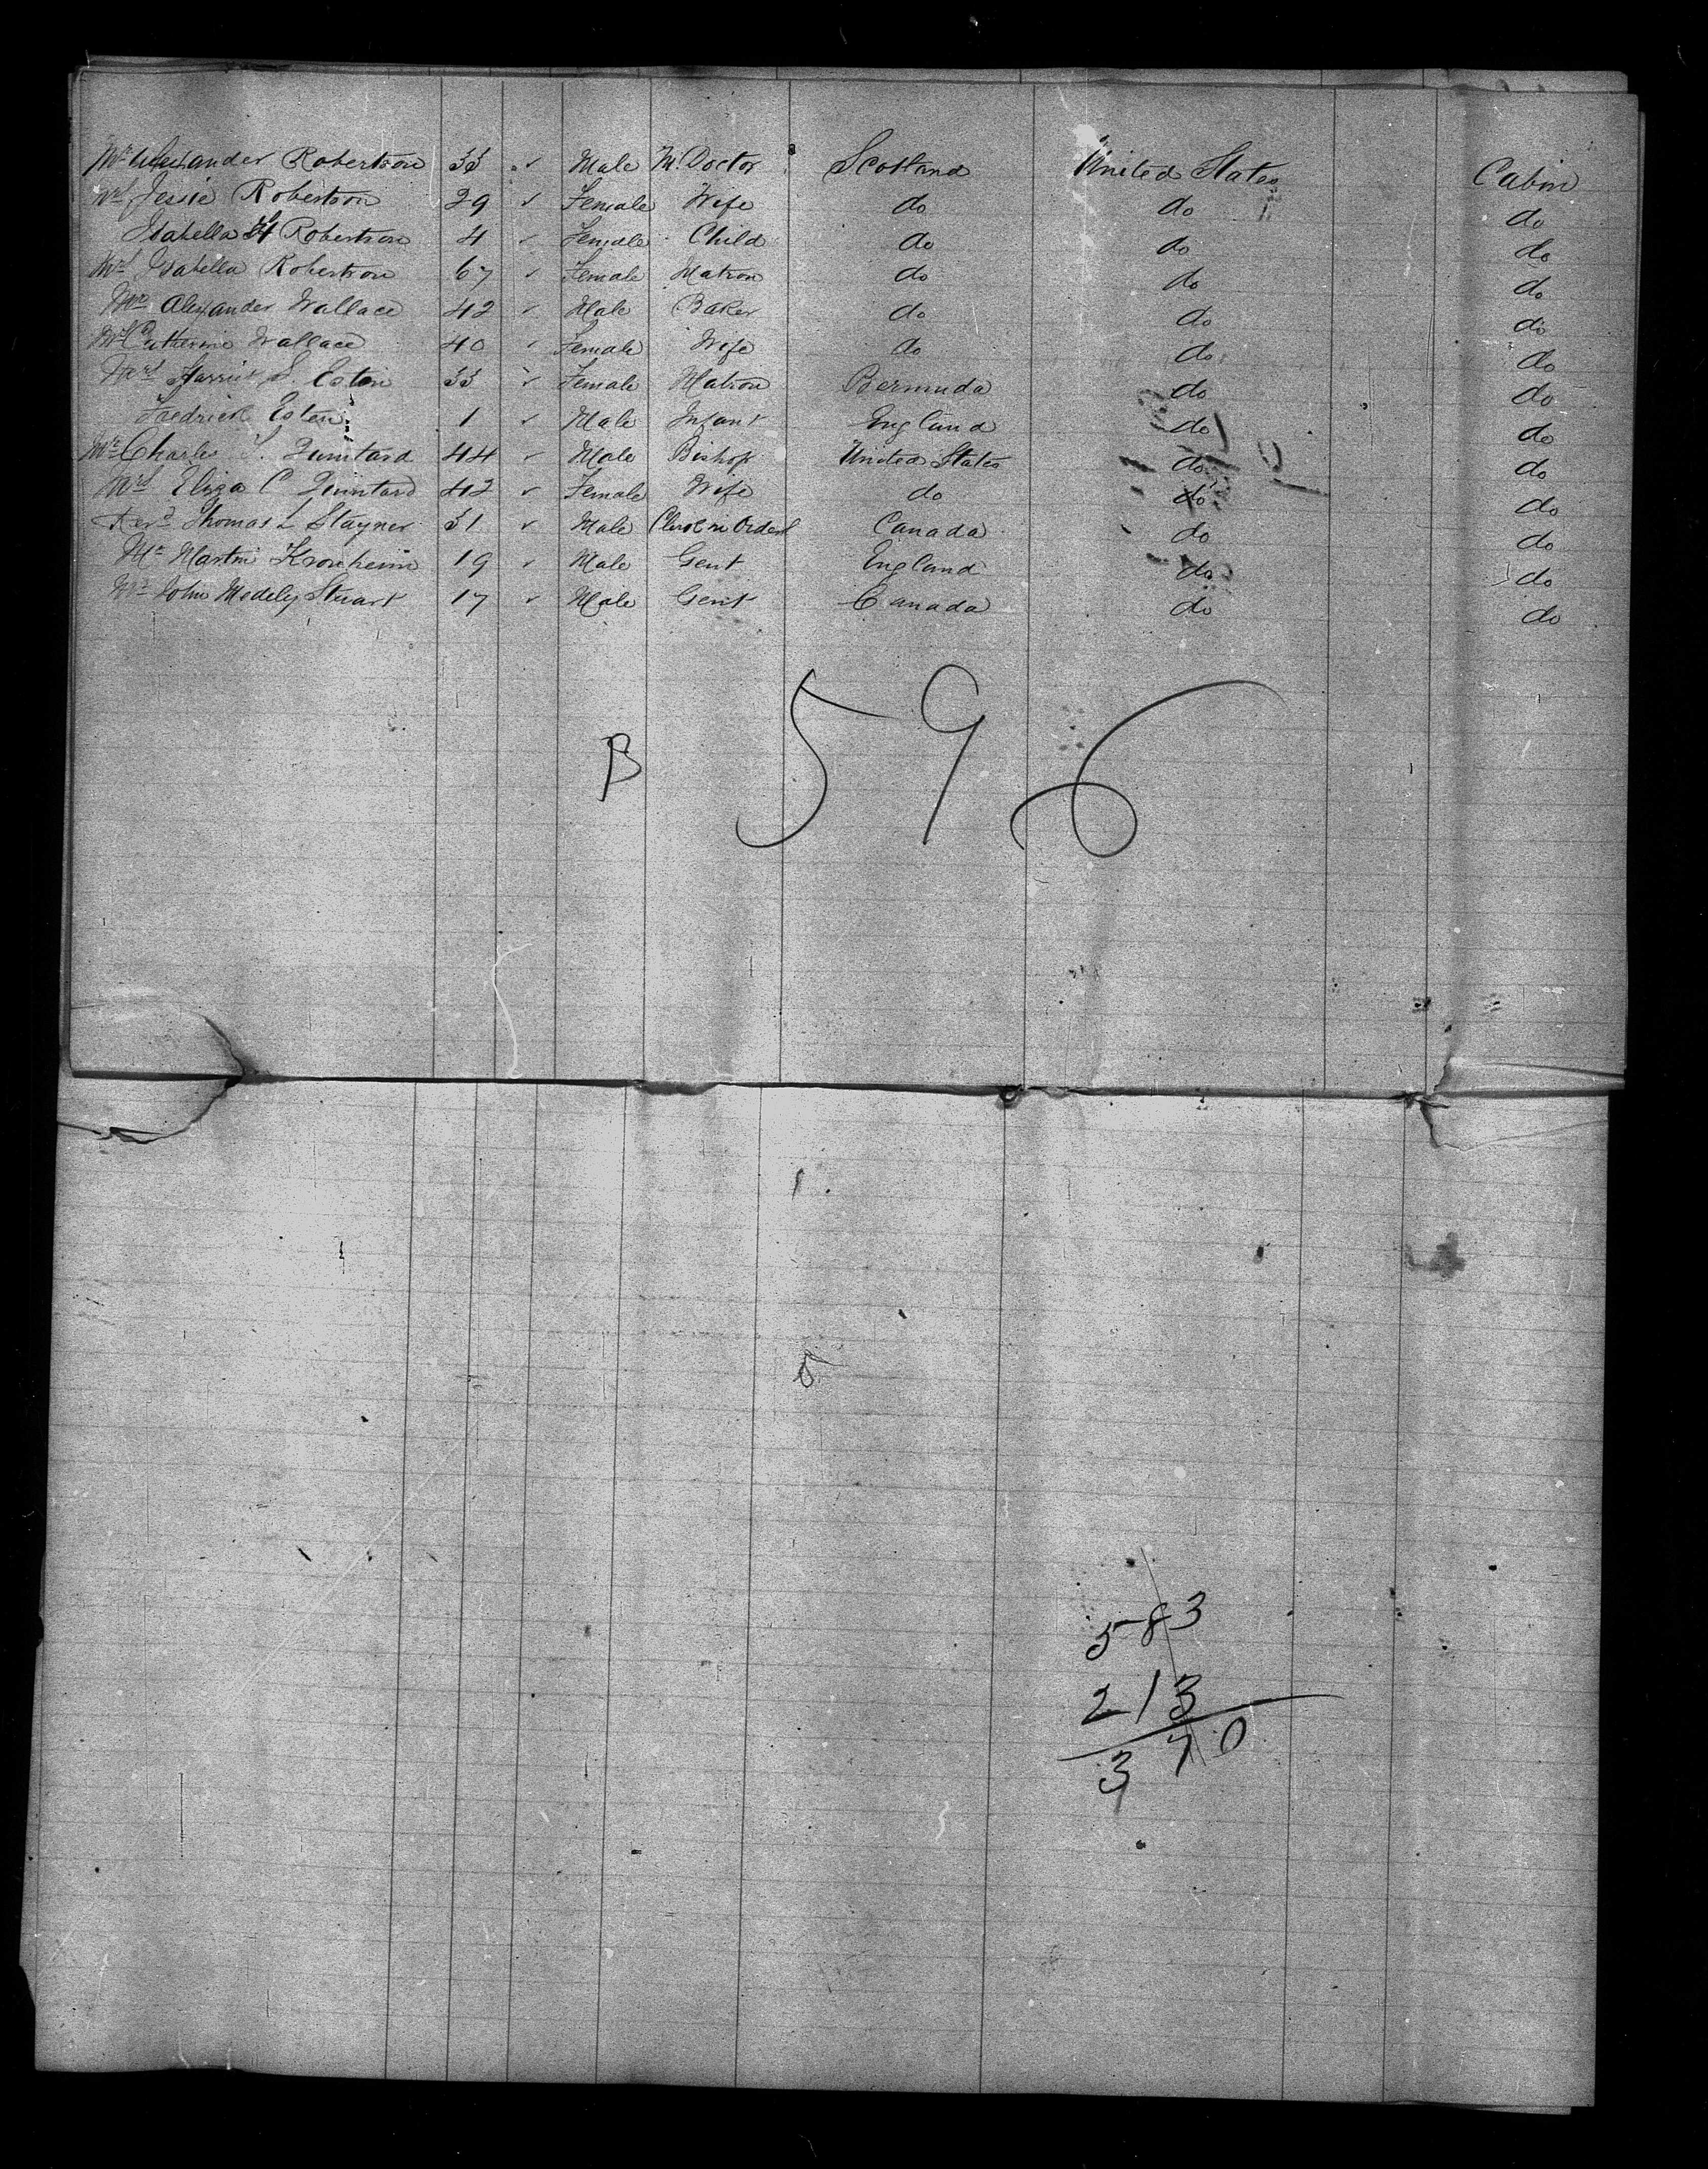 Mr Alexander Robertson 33 ✓ Male M. Doctor Scotland United States Cabin
Mrs Jessie Robertson 29 ✓ Female Wife do do do
Isabella H Robertson 4 ✓ Female Child do do do
Mrs Isabella Robertson 67 ✓ Female Matron do do do
Mr Alexander Wallace 42 ✓ Male Baker do do do
Mrs Catherine Wallace 40 ✓ Female Wife do do do
Mrs Harriet S. Esten 33 ✓ Female Matron Bermuda do do
Fredrick Esten 1 ✓ Male Infant England do do
Mr Charles T. Quintard 44 ✓ Male Bishop United States do do
Mrs Eliza C Quintard 42 ✓ Female Wife do do do
Revd Thomas L Stayner 31 ✓ Male Clerk in Orders Canada do do
Mr Martin Kronheim 19 ✓ Male Gent England do do
Mr John Medely Stuart 17 ✓ Male Gent Canada do do
B 596
583
213
370